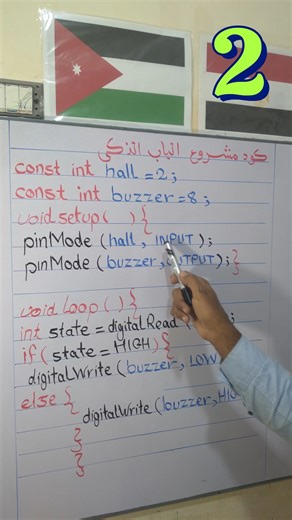 2
كود مشروع الباب الذكي
const int hall = 2 ;
const int buzzer = 8 ;
void setup( ) {
pinMode ( hall , INPUT ) ;
pinMode ( buzzer , OUTPUT ) ; }
void Loop ( ) {
int state = digitalRead (
if ( state = HIGH ) {
digitalWrite ( buzzer , LOW
else {
digitalWrite ( buzzer , HIGH
}
}